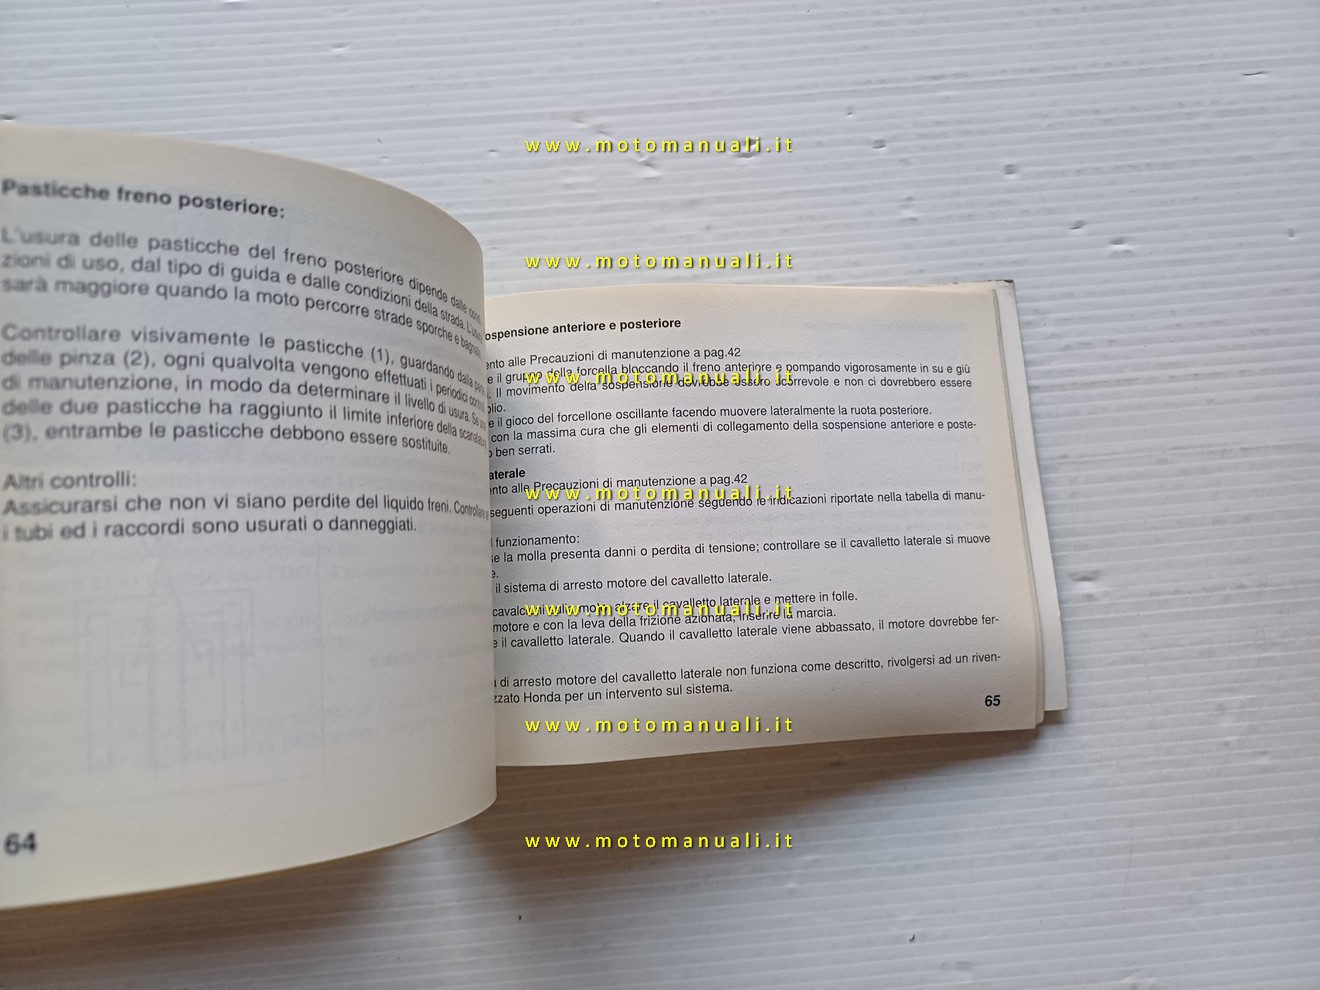 Pasticche freno posteriore:
L'usura delle pasticche del freno posteriore dipende dalle condi-
zioni di uso, dal tipo di guida e dalle condizioni della strada. L'usura
sarà maggiore quando la moto percorre strade sporche e bagnate.
Controllare visivamente le pasticche (1), guardando dalla parte
delle pinza (2), ogni qualvolta vengono effettuati i periodici controlli
di manutenzione, in modo da determinare il livello di usura. Se una
delle due pasticche ha raggiunto il limite inferiore della scanalatura
(3), entrambe le pasticche debbono essere sostituite.
Altri controlli:
Assicurarsi che non vi siano perdite del liquido freni. Controllare se
i tubi ed i raccordi sono usurati o danneggiati.
64
ospensione anteriore e posteriore
ento alle Precauzioni di manutenzione a pag.42
e il gruppo della forcella bloccando il freno anteriore e pompando vigorosamente in su e giù
. Il movimento della sospensione dovrebbe essere scorrevole e non ci dovrebbero essere
olio.
e il gioco del forcellone oscillante facendo muovere lateralmente la ruota posteriore.
con la massima cura che gli elementi di collegamento della sospensione anteriore e poste-
o ben serrati.
aterale
ento alle Precauzioni di manutenzione a pag.42
seguenti operazioni di manutenzione seguendo le indicazioni riportate nella tabella di manu-
l funzionamento:
se la molla presenta danni o perdita di tensione; controllare se il cavalletto laterale si muove
e.
il sistema di arresto motore del cavalletto laterale.
moto, alzare il cavalletto laterale e mettere in folle.
motore e con la leva della frizione azionata, inserire la marcia.
e il cavalletto laterale. Quando il cavalletto laterale viene abbassato, il motore dovrebbe fer-
a di arresto motore del cavalletto laterale non funziona come descritto, rivolgersi ad un riven-
zzato Honda per un intervento sul sistema.
65
www.motomanuali.it
www.motomanuali.it
www.motomanuali.it
www.motomanuali.it
www.motomanuali.it
www.motomanuali.it
www.motomanuali.it